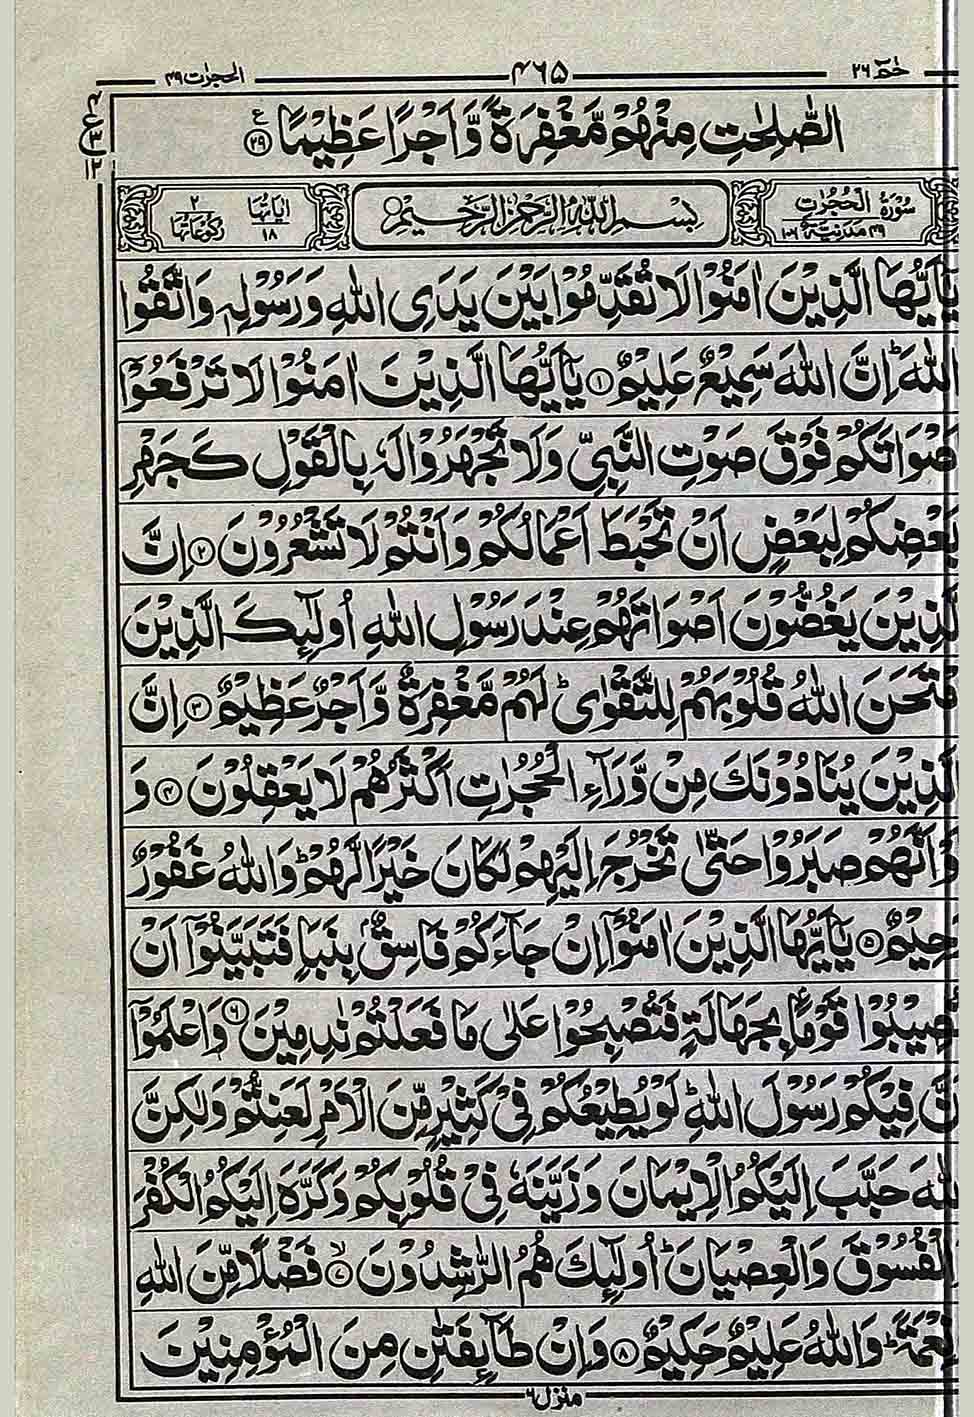 خٰمٓ ٢٦ ٤٦٥ الحجرٰت ٤٩
الصّٰلِحٰتِ مِنْهُمْ مَّغْفِرَةً وَّاَجْرًا عَظِيْمًا ﴿٢٩﴾ ع
ع ٤ ٣ ١٢
سُوْرَةُ الْحُجُرٰتِ ٤٩ مَدَنِيَّةٌ ١٠٦ بِسْمِ اللهِ الرَّحْمٰنِ الرَّحِيْمِ اٰيَاتُهَا ١٨ رُكُوْعَاتُهَا ٢
يٰۤاَيُّهَا الَّذِيْنَ اٰمَنُوْا لَا تُقَدِّمُوْا بَيْنَ يَدَيِ اللهِ وَرَسُوْلِهٖ وَاتَّقُوا
اللهَ ؕ اِنَّ اللهَ سَمِيْعٌ عَلِيْمٌ ﴿١﴾ يٰۤاَيُّهَا الَّذِيْنَ اٰمَنُوْا لَا تَرْفَعُوْۤا
صْوَاتَكُمْ فَوْقَ صَوْتِ النَّبِيِّ وَلَا تَجْهَرُوْا لَهٗ بِالْقَوْلِ كَجَهْرِ
بَعْضِكُمْ لِبَعْضٍ اَنْ تَحْبَطَ اَعْمَالُكُمْ وَاَنْتُمْ لَا تَشْعُرُوْنَ ﴿٢﴾ اِنَّ
لَّذِيْنَ يَغُضُّوْنَ اَصْوَاتَهُمْ عِنْدَ رَسُوْلِ اللهِ اُولٰٓئِكَ الَّذِيْنَ
مْتَحَنَ اللهُ قُلُوْبَهُمْ لِلتَّقْوٰى ؕ لَهُمْ مَّغْفِرَةٌ وَّاَجْرٌ عَظِيْمٌ ﴿٣﴾ اِنَّ
لَّذِيْنَ يُنَادُوْنَكَ مِنْ وَّرَآءِ الْحُجُرٰتِ اَكْثَرُهُمْ لَا يَعْقِلُوْنَ ﴿٤﴾ وَ
وْ اَنَّهُمْ صَبَرُوْا حَتّٰى تَخْرُجَ اِلَيْهِمْ لَكَانَ خَيْرًا لَّهُمْ ؕ وَاللهُ غَفُوْرٌ
حِيْمٌ ﴿٥﴾ يٰۤاَيُّهَا الَّذِيْنَ اٰمَنُوْۤا اِنْ جَآءَكُمْ فَاسِقٌۢ بِنَبَاٍ فَتَبَيَّنُوْۤا اَنْ
صِيْبُوْا قَوْمًۢا بِجَهَالَةٍ فَتُصْبِحُوْا عَلٰى مَا فَعَلْتُمْ نٰدِمِيْنَ ﴿٦﴾ وَاعْلَمُوْۤا
نَّ فِيْكُمْ رَسُوْلَ اللهِ ؕ لَوْ يُطِيْعُكُمْ فِيْ كَثِيْرٍ مِّنَ الْاَمْرِ لَعَنِتُّمْ وَلٰكِنَّ
للهَ حَبَّبَ اِلَيْكُمُ الْاِيْمَانَ وَزَيَّنَهٗ فِيْ قُلُوْبِكُمْ وَكَرَّهَ اِلَيْكُمُ الْكُفْرَ
الْفُسُوْقَ وَالْعِصْيَانَ ؕ اُولٰٓئِكَ هُمُ الرّٰشِدُوْنَ ﴿٧﴾ ۙ فَضْلًا مِّنَ اللهِ
نِعْمَةً ؕ وَاللهُ عَلِيْمٌ حَكِيْمٌ ﴿٨﴾ وَاِنْ طَآئِفَتٰنِ مِنَ الْمُؤْمِنِيْنَ
منزل ٦